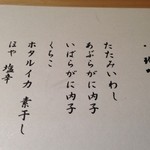 珍味
たたみいわし
あぶらがに内子
いばらがに内子
くちこ
ホタルイカ 素干し
ほや 塩辛